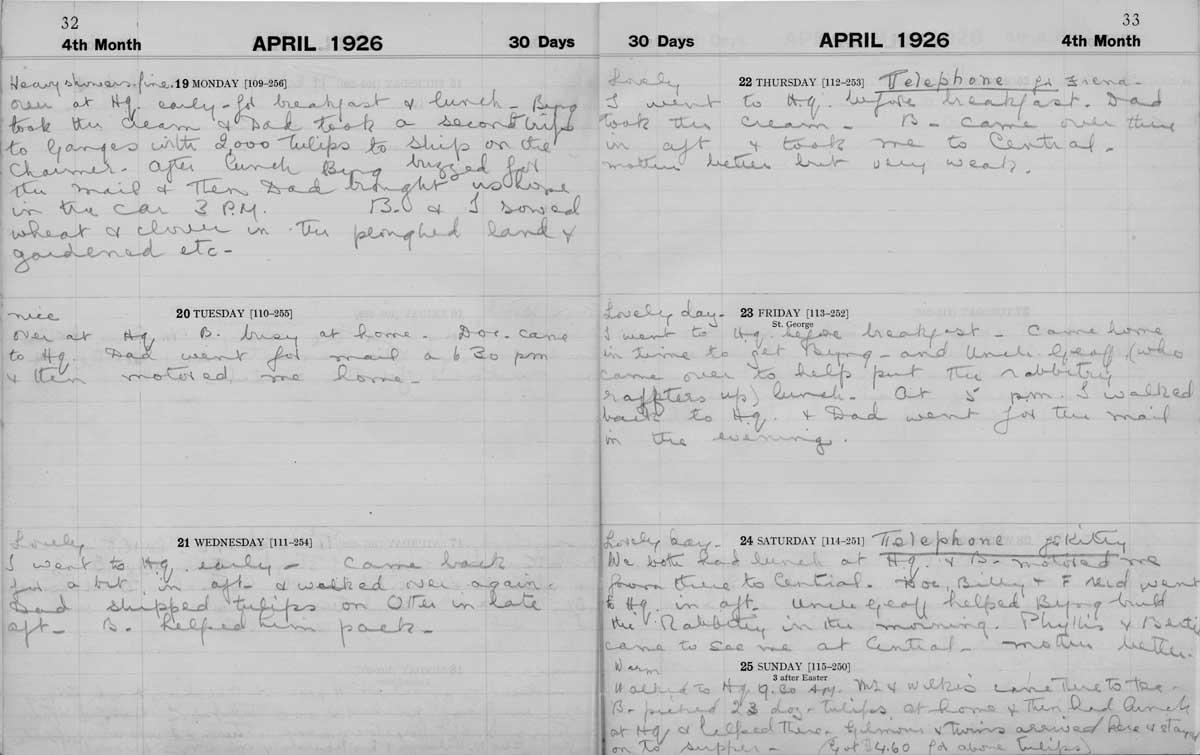 32
4th Month APRIL 1926 30 Days
Heavy showers. fine. 19 MONDAY [109-256]
over at Hq. early - for breakfast & lunch - Byng
took the cream & Dad took a second trip
to Ganges with 2,000 tulips to ship on the
Charmer. After lunch Byng buzzed for
the mail & then Dad brought us home
in the car 3 P.M. B. & I sowed
wheat & clover in the ploughed land &
gardened etc -
nice 20 TUESDAY [110-255]
over at Hq. B. busy at home. Doc. came
to Hq. Dad went for mail a 6 30 pm
& then motored me home -
Lovely 21 WEDNESDAY [111-254]
I went to Hq early - came back
for a bit in aft & walked over again -
Dad shipped tulips on Otter in late
aft - B. helped him pack -
33
30 Days APRIL 1926 4th Month
Lovely 22 THURSDAY [112-253] Telephone for Irena -
I went to Hq. before breakfast. Dad
took the cream - B - came over there
in aft & took me to Central -
mother better but very weak.
Lovely day - 23 FRIDAY [113-252]
St. George
I went to Hq. before breakfast - came home
in time to get Byng - and Uncle Geoff (who
came over to help put the rabbitry
raffters up) lunch - At 5 pm. I walked
back to Hq. & Dad went for the mail
in the evening.
Lovely day 24 SATURDAY [114-251] Telephone for Kitty
We both had lunch at Hq. & B - motored me
from there to Central. Doc, Billy & F Reid went
to Hq. in aft. Uncle Geoff helped Byng build
the Rabbitry in the morning. Phyllis &
came to see me at Central - mother better.
Warm 25 SUNDAY [115-250]
3 after Easter
Walked to Hq. 9.30 AM. & Wilkes came there to tea -
B - picked 23 doz - tulips at home & then had lunch
at Hq & helped there - & twins arrived here & stayed
on to supper - (Got $4.60 for above tulips)